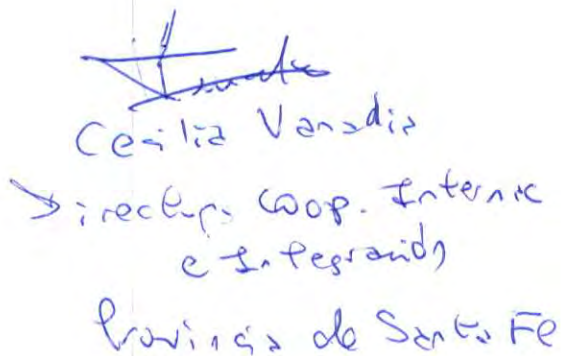 Cecilia Vanadia
Directora Coop. Internac
e Integración
Provincia de Santa Fe